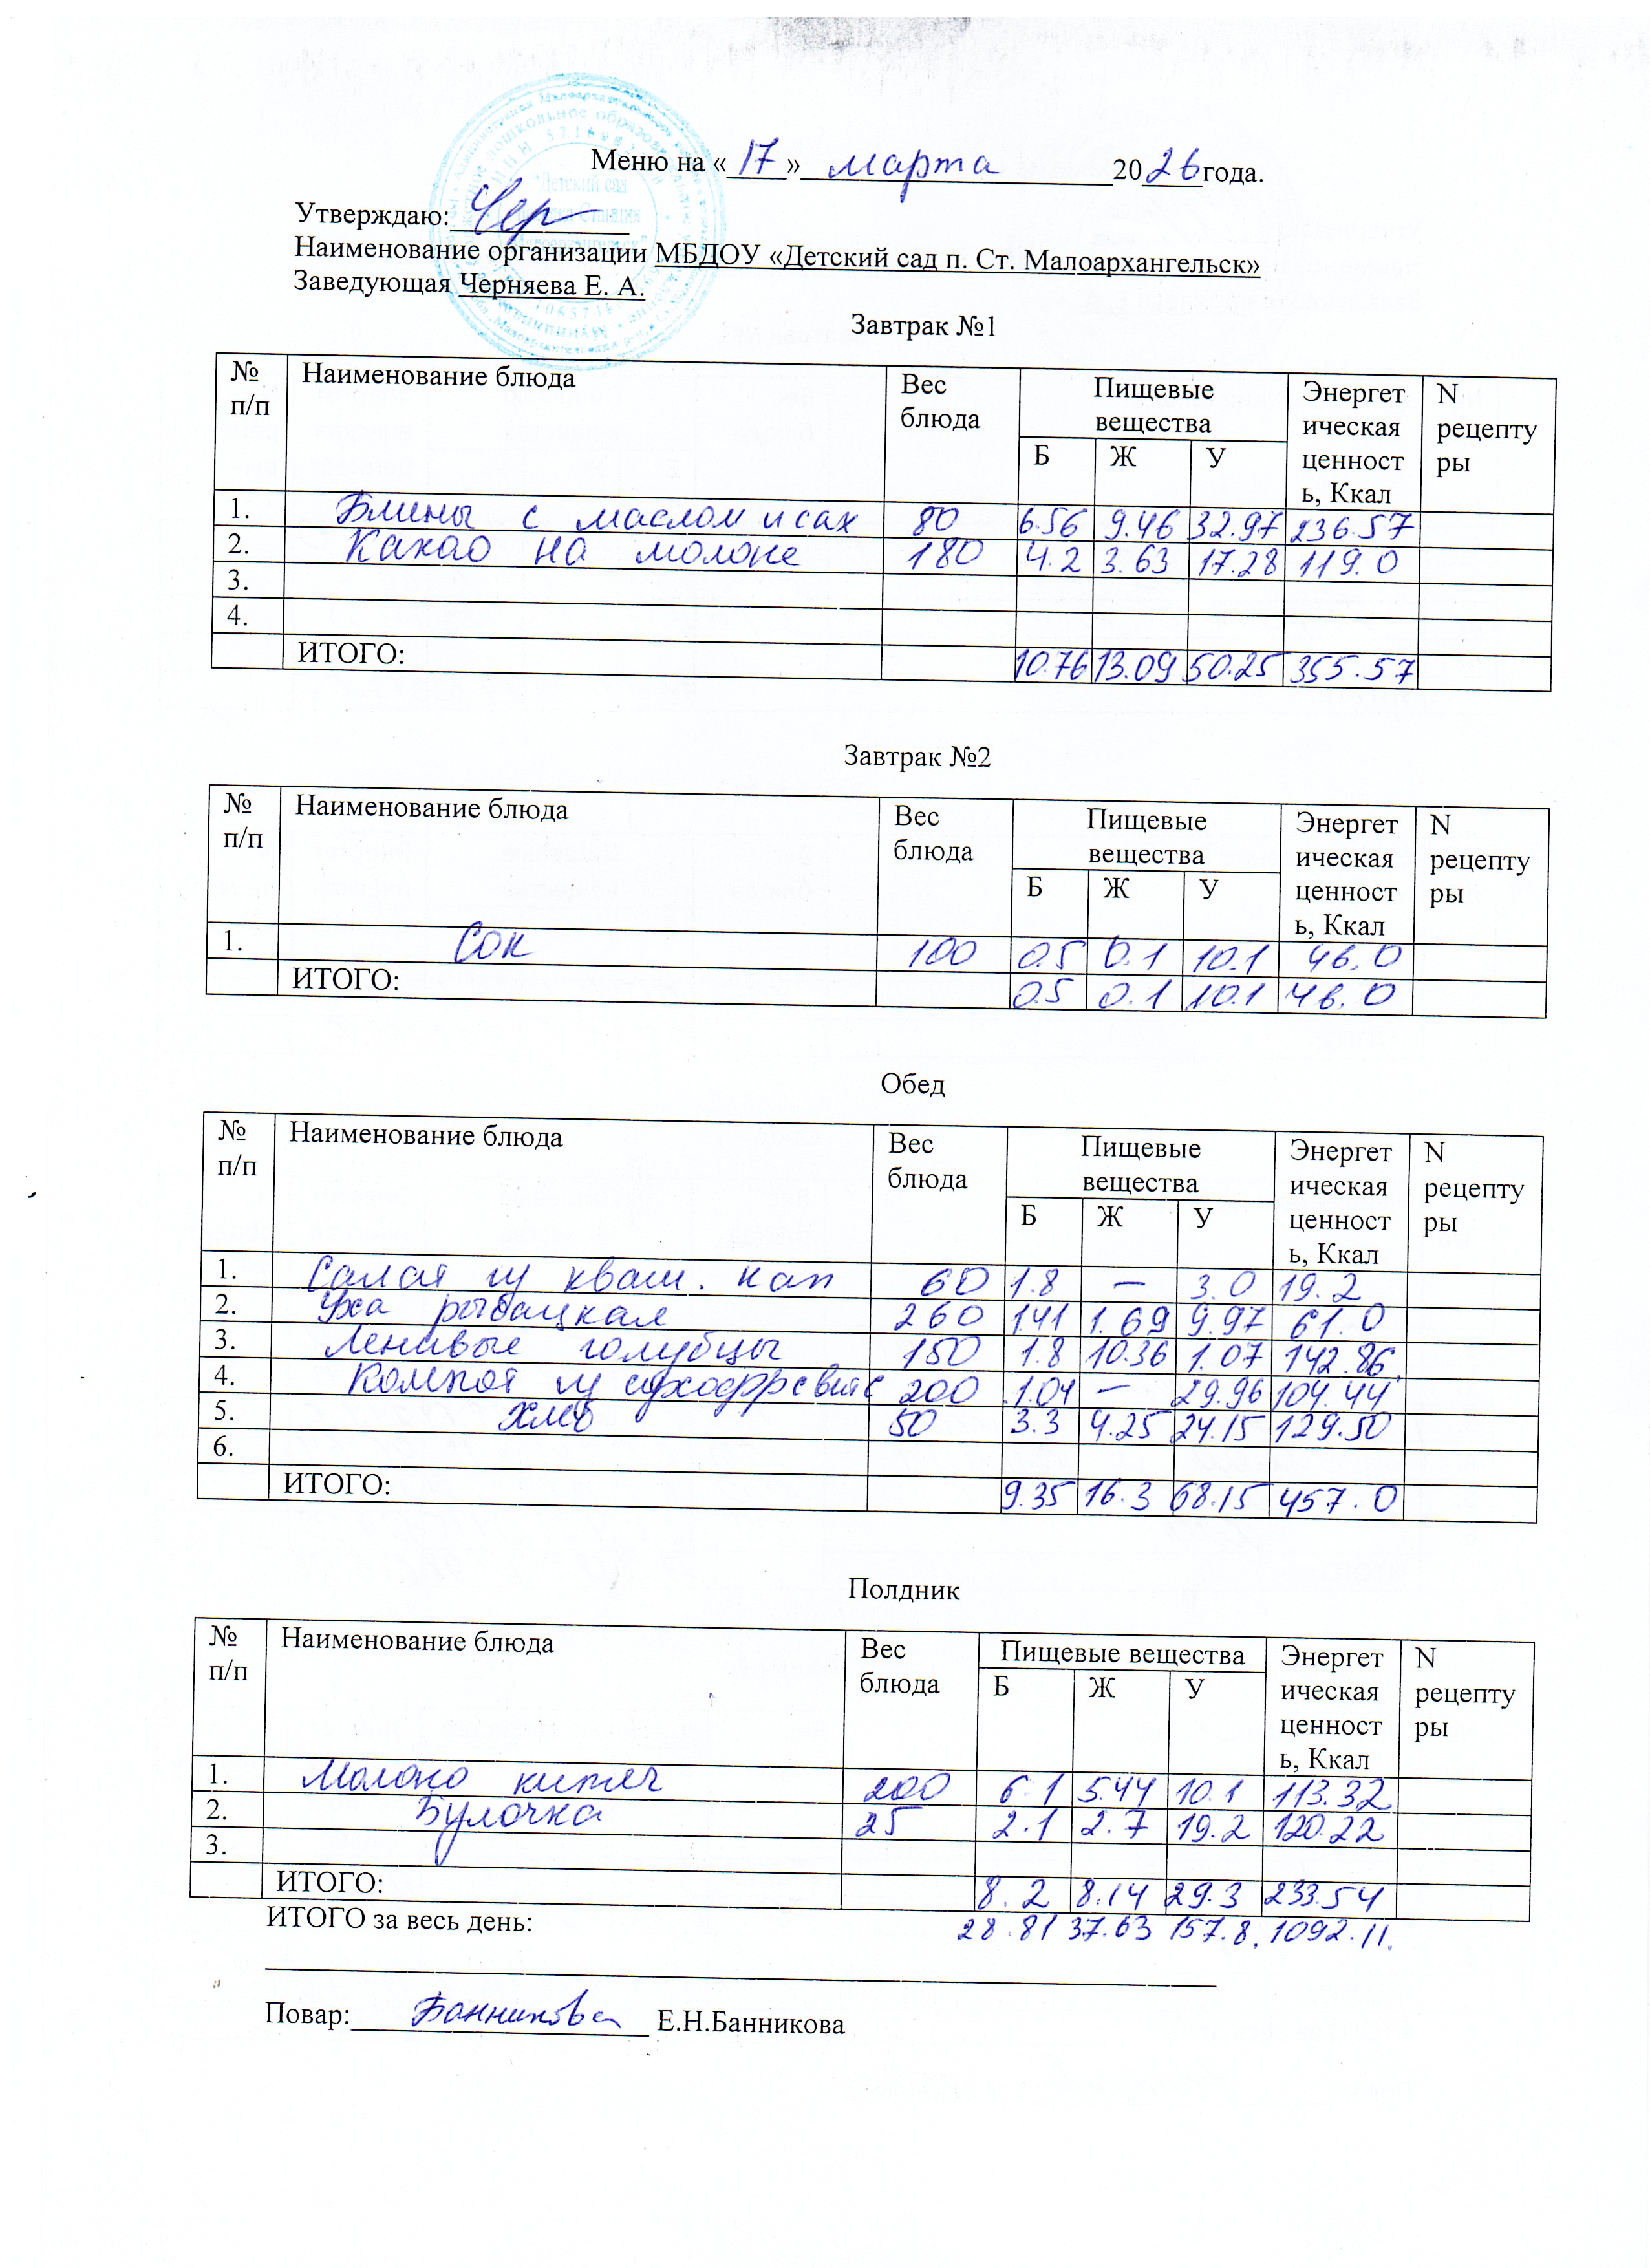 Меню на «17» марта 2026 года.
Утверждаю: Чер
Наименование организации МБДОУ «Детский сад п. Ст. Малоархангельск»
Заведующая Черняева Е. А.
Завтрак №1
№ п/п Наименование блюда Вес блюда Пищевые вещества Б Ж У Энергетическая ценность, Ккал N рецептуры
1. Блины с маслом и сах 80 6.56 9.46 32.97 236.57
2. Какао на молоке 180 4.2 3.63 17.28 119.0
3.
4.
ИТОГО: 10.76 13.09 50.25 355.57
Завтрак №2
№ п/п Наименование блюда Вес блюда Пищевые вещества Б Ж У Энергетическая ценность, Ккал N рецептуры
1. Сок 100 0.5 0.1 10.1 46.0
ИТОГО: 0.5 0.1 10.1 46.0
Обед
№ п/п Наименование блюда Вес блюда Пищевые вещества Б Ж У Энергетическая ценность, Ккал N рецептуры
1. Салат из кваш. кап 60 1.8 — 3.0 19.2
2. Уха рыбацкая 260 1.41 1.69 9.97 61.0
3. Ленивые голубцы 150 1.8 10.36 1.07 142.86
4. Компот из сухофр с вит С 200 1.04 — 29.96 104.44
5. Хлеб 50 3.3 4.25 24.15 129.50
6.
ИТОГО: 9.35 16.3 68.15 457.0
Полдник
№ п/п Наименование блюда Вес блюда Пищевые вещества Б Ж У Энергетическая ценность, Ккал N рецептуры
1. Молоко кипяч 200 6.1 5.44 10.1 113.32
2. Булочка 25 2.1 2.7 19.2 120.22
3.
ИТОГО: 8.2 8.14 29.3 233.54
ИТОГО за весь день: 28.81 37.63 157.8. 1092.11.
Повар: Банникова Е.Н.Банникова